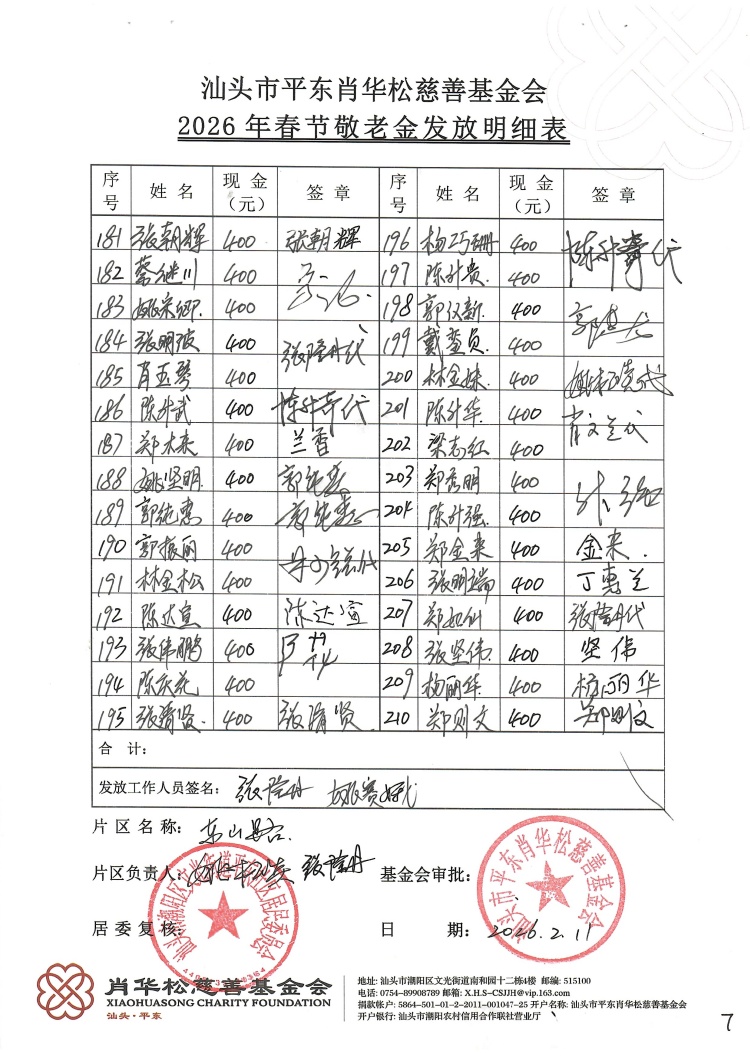 汕头市平东肖华松慈善基金会
2026年春节敬老金发放明细表
序号 姓名 现金（元） 签章 序号 姓名 现金（元） 签章
181 张朝辉 400 张朝辉 196 杨巧珊 400 陈升奇代
182 蔡继川 400 197 陈升贵 400
183 姚宋卿 400 198 郭仪新 400
184 张明波 400 张隆丹代 199 戴蛮员 400
185 肖玉琴 400 200 林金妹 400
186 陈升武 400 陈升奇代 201 陈升华 400 肖文兰代
187 郑木来 400 兰香 202 梁志红 400
188 姚坚明 400 郭纯惠 203 郑秀明 400
189 郭纯惠 400 郭纯惠 204 陈升强 400
190 郭振丽 400 205 郑金来 400 金来
191 林金松 400 206 张明端 400 丁惠兰
192 陈达宣 400 陈达宣 207 郑如仙 400 张隆丹代
193 张伟鹏 400 208 张坚伟 400 坚伟
194 陈庆光 400 209 杨丽华 400 杨丽华
195 张靖贤 400 张靖贤 210 郑则文 400 郑则文
合计：
发放工作人员签名： 张隆丹
片区名称：东山
片区负责人： 张隆丹 基金会审批：
居委复核： 日期： 2026.2.11
汕头市平东肖华松慈善基金会
肖华松慈善基金会
XIAOHUASONG CHARITY FOUNDATION
汕头·平东
地址: 汕头市潮阳区文光街道南和园十二栋4楼 邮编: 515100
电话: 0754-89908789 邮箱: X.H.S-CSJJH@vip.163.com
捐款帐户: 5864-501-01-2-2011-001047-25 开户名称: 汕头市平东肖华松慈善基金会
开户银行: 汕头市潮阳农村信用合作联社营业厅
7